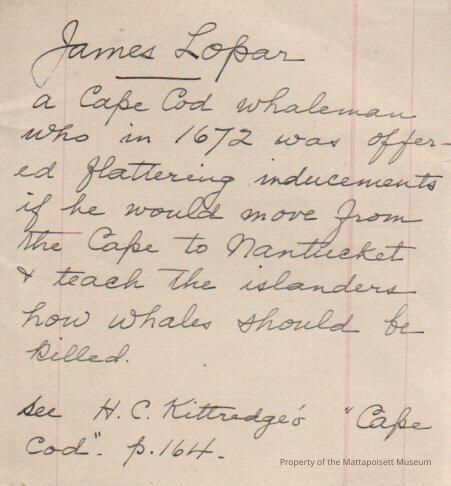 James Lopar
a Cape Cod whaleman
who in 1672 was offer-
ed flattering inducements
if he would move from
the Cape to Nantucket
& teach the islanders
how whales should be
killed.
see H. C. Kittredge's "Cape
Cod". p. 164.
Property of the Mattapoisett Museum